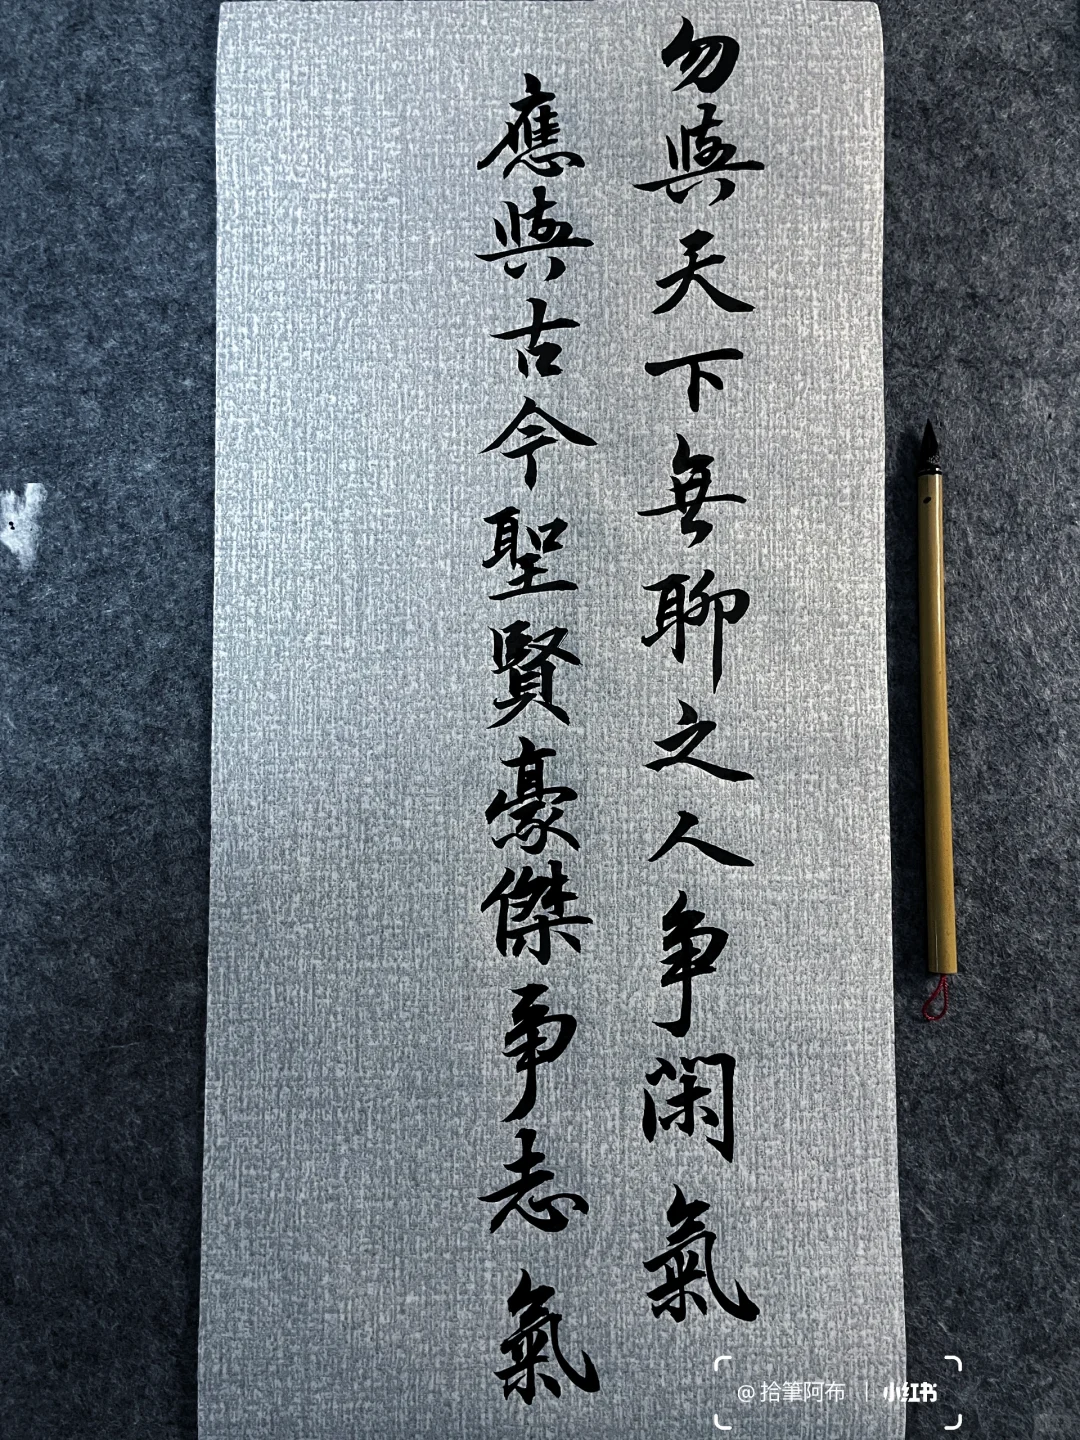 勿與天下無聊之人争閑氣
應與古今聖賢豪傑爭志氣
@拾筆阿布 | 小红书